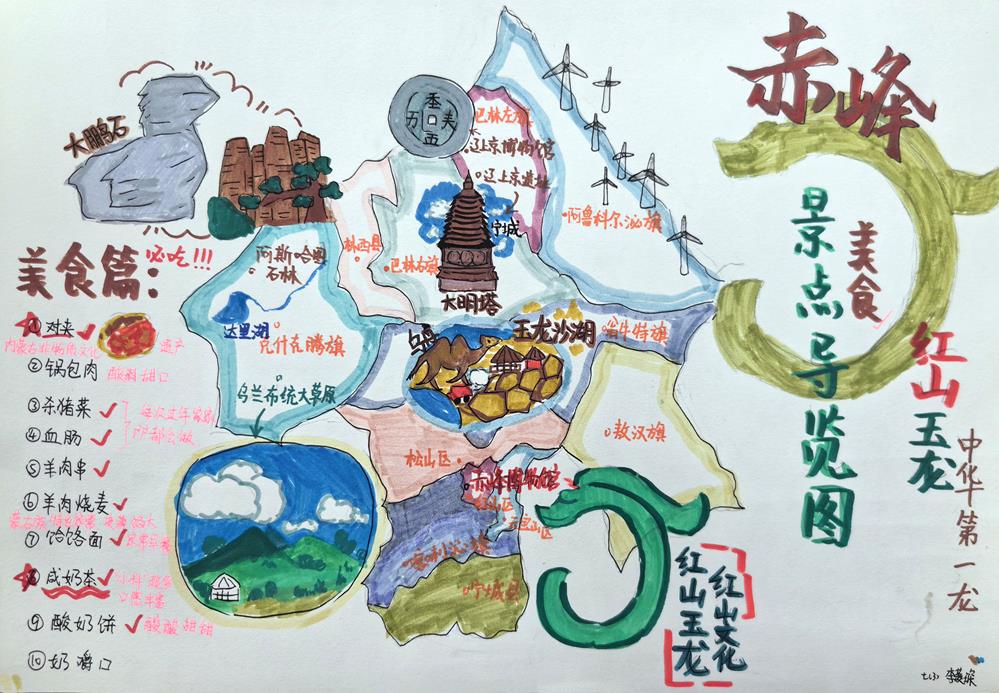 赤峰
景点
美食
导览图
红山
玉龙
中华第一龙
大鹏石
美食篇：
必吃!!!
① 对夹
内蒙古非物质文化
遗产
② 锅包肉
酸甜口
③ 杀猪菜
④ 血肠
⑤ 羊肉串
⑥ 羊肉烧麦
⑦ 饸饹面
⑧ 咸奶茶
⑨ 酸奶饼
酸酸甜甜
⑩ 奶嚼口
巴林左旗
辽上京博物馆
辽上京遗址
宁城
阿鲁科尔沁旗
林西县
巴林右旗
大明塔
阿斯哈图
石林
达里湖
克什克腾旗
乌兰布统大草原
玉龙沙湖
翁牛特旗
敖汉旗
松山区
赤峰博物馆
红山区
元宝山区
喀喇沁旗
宁城县
红山文化
红山玉龙